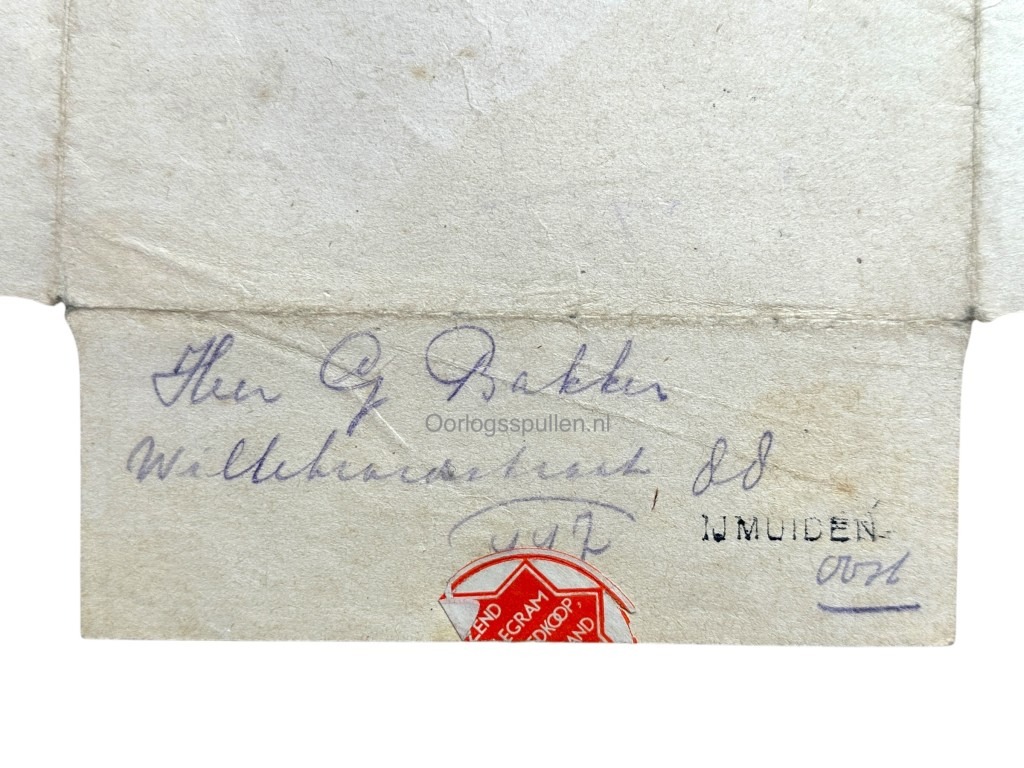 Heer G Bakker
Oorlogsspullen.nl
Willebrordstraat 88
IJMUIDEN
Oost
EGRAM